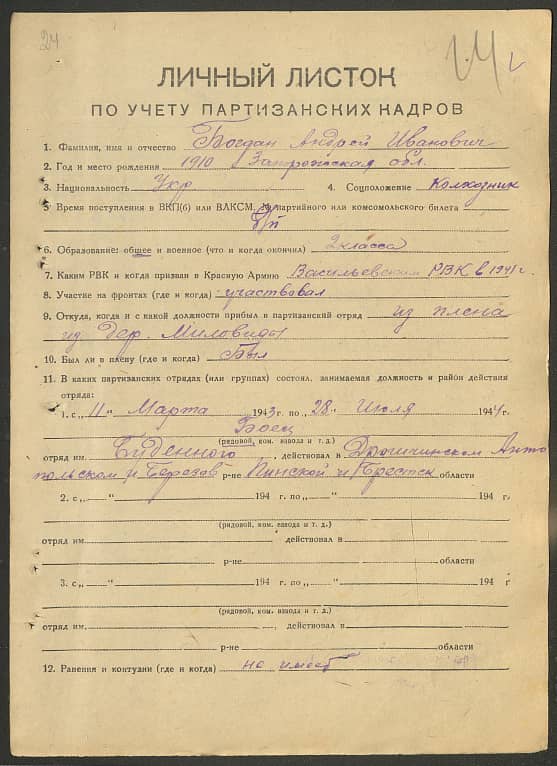 24
ЛИЧНЫЙ ЛИСТОК
ПО УЧЕТУ ПАРТИЗАНСКИХ КАДРОВ
1. Фамилия, имя и отчество Богдан Андрей Иванович
2. Год и место рождения 1910 Запорожская обл.
3. Национальность Укр 4. Соцположение Колхозник
5 Время поступления в ВКП(б) или ВЛКСМ, № партийного или комсомольского билета
б/п
6. Образование: общее и военное (что и когда окончил) 2 класса
7. Каким РВК и когда призван в Красную Армию Васильевским РВК в 1941 г.
8. Участие на фронтах (где и когда) участвовал
9. Откуда, когда и с какой должности прибыл в партизанский отряд из плена
из дер. Миловиды
10. Был ли в плену (где и когда) Был
11. В каких партизанских отрядах (или группах) состоял, занимаемая должность и район действия
отряда:
1. с „11" Марта 1943 г. по „28" Июля 1944 г.
Боец
(рядовой, ком. взвода и т. д.)
отряд им. Буденного, действовал в Дрогичинском Анто
польском и Березов р-не Пинской и Брестск области
2. с „ " 194 г. по „ " 194 г.
(рядовой, ком. взвода и т. д.)
отряд им. действовал в
р-не области
3. с „ " 194 г. по „ " 194 г
(рядовой, ком. взвода и т. д.)
отряд им. , действовал в
р-не области
12. Ранения и контузии (где и когда) не имеет